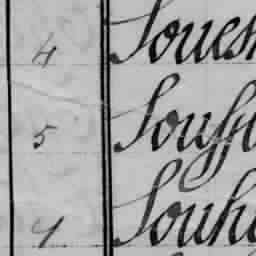 4 Soues
5 Souff
7 Souh